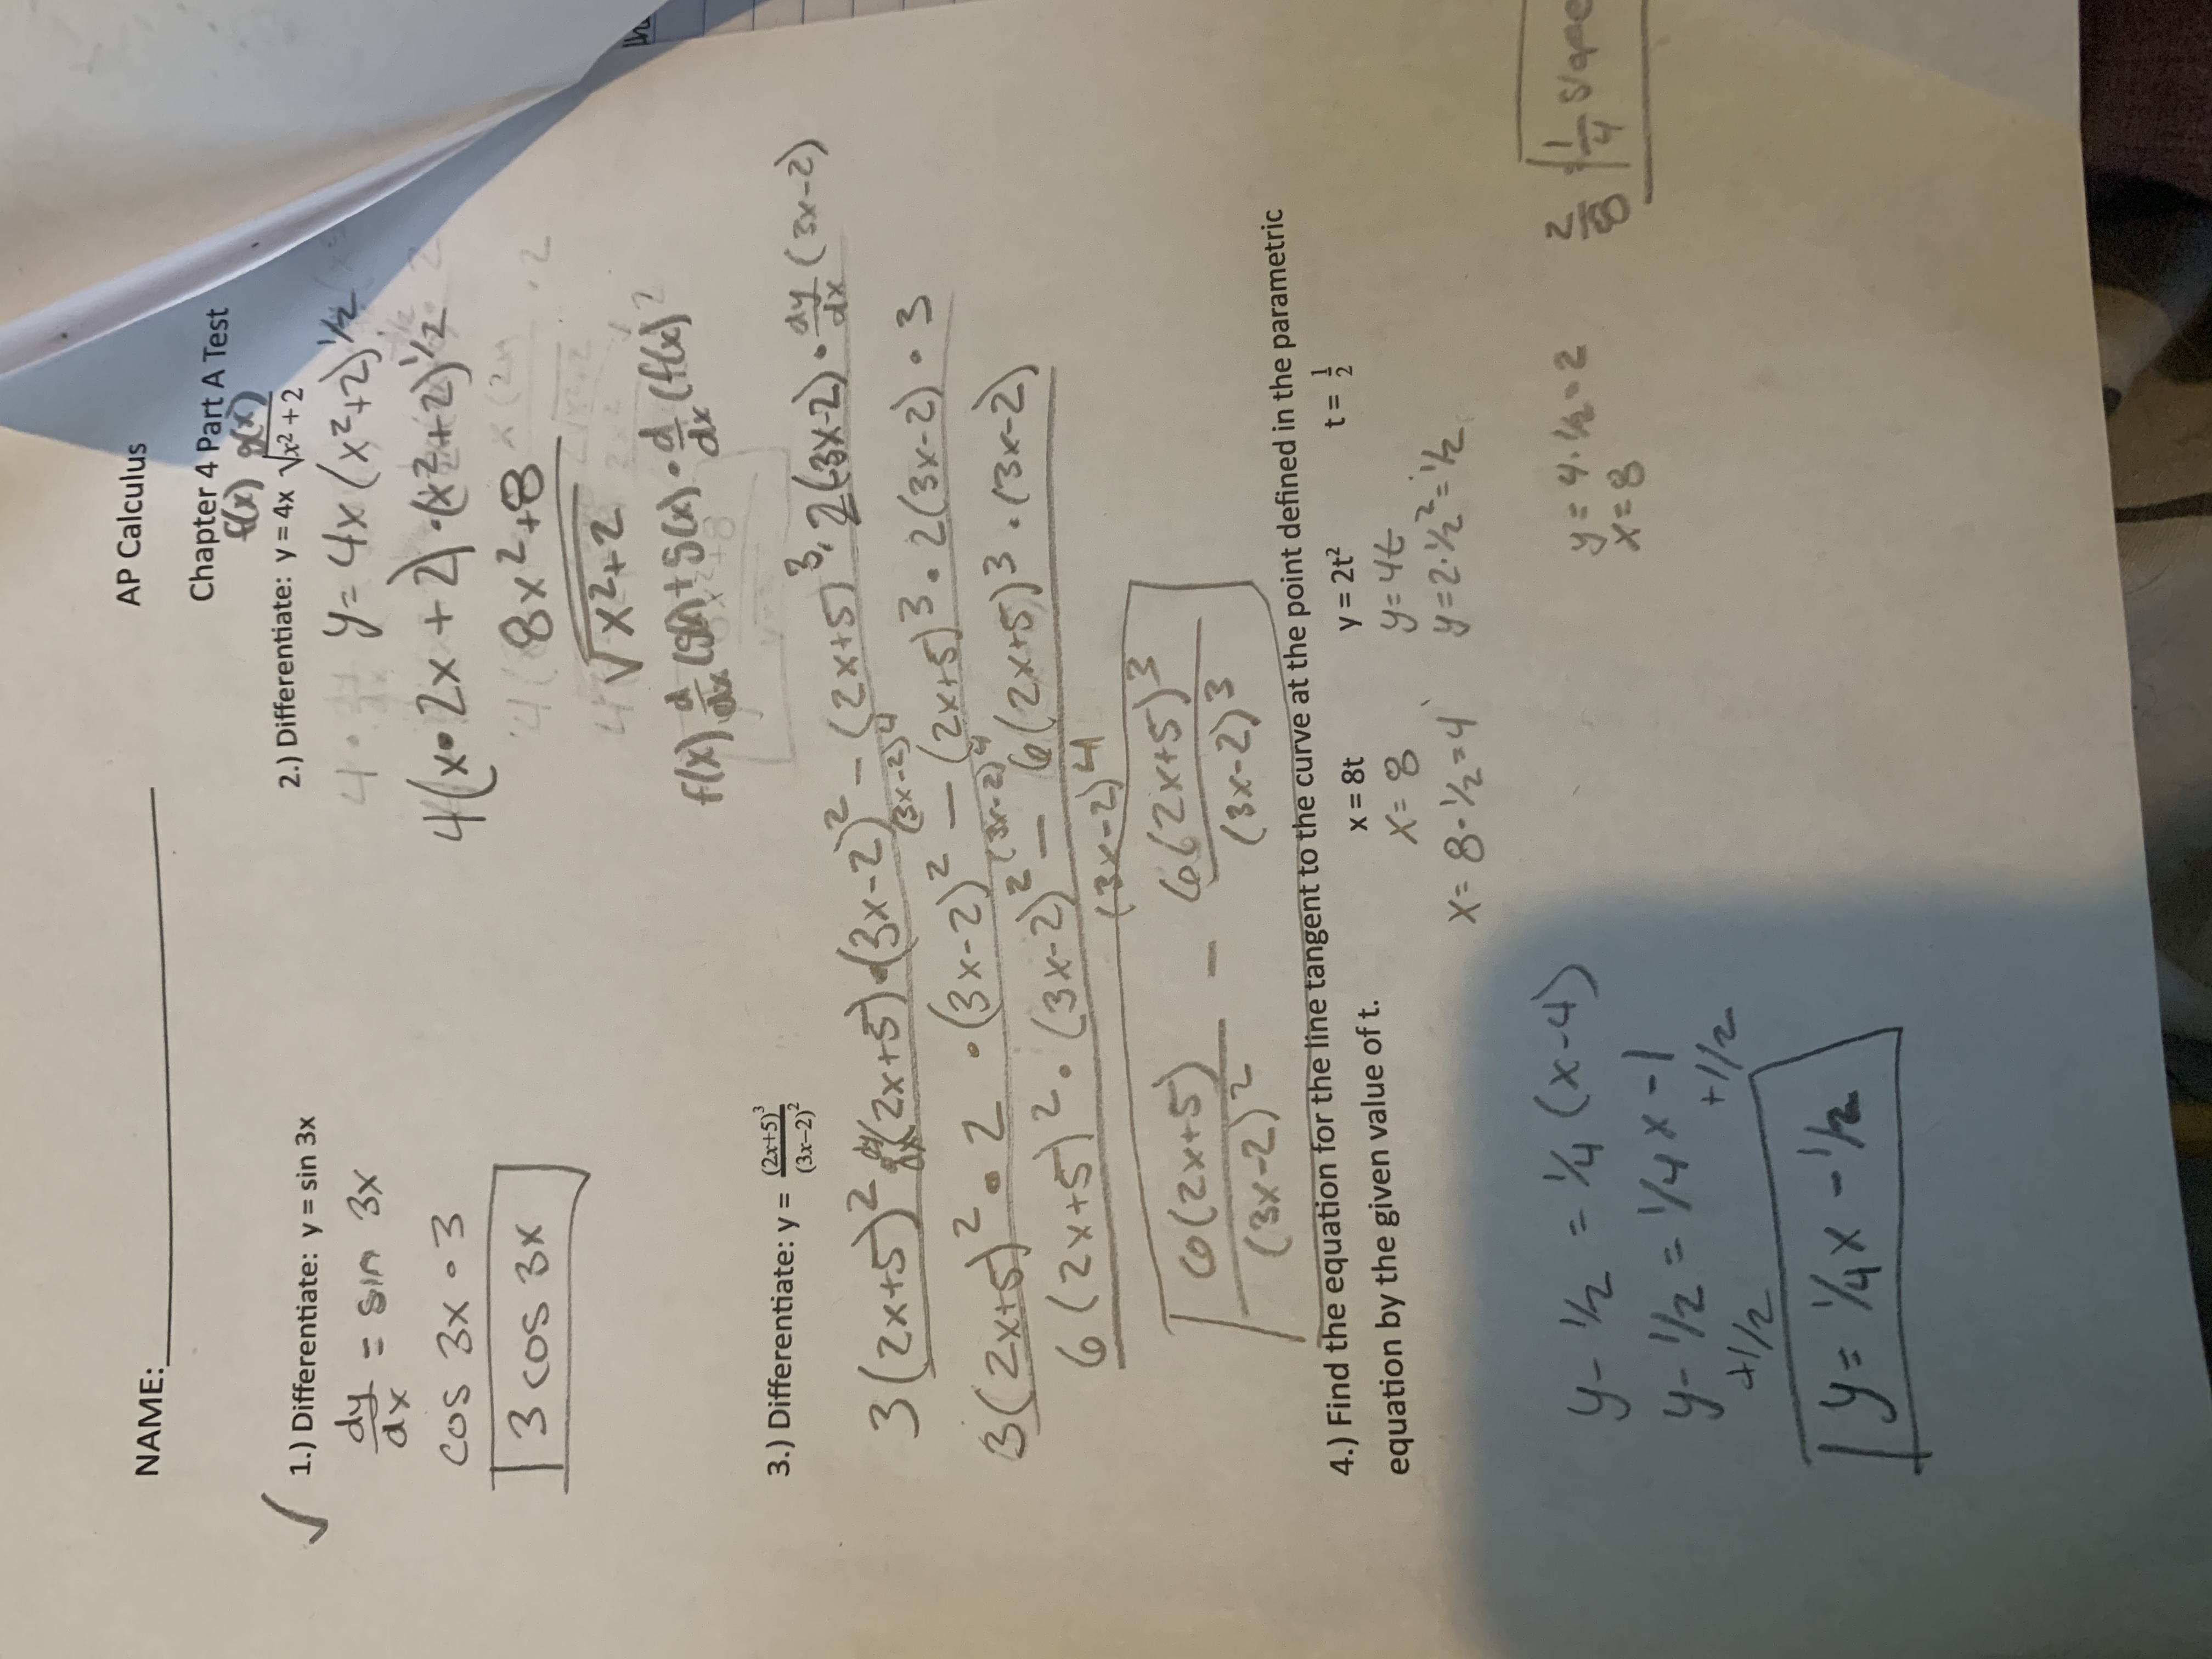 NAME:
AP Calculus
Chapter 4 Part A Test
1.) Differentiate: y = sin 3x
dy/dx = sin 3x
cos 3x · 3
3 cos 3x
f(x) g(x)
2.) Differentiate: y = 4x √x² + 2
y = 4x (x²+2)^1/2
4(x·2x + 2)·(x²+2)^1/2
8x²+8
√x²+2
f(x) d/dx + g(x) · d/dx (f(x)
3.) Differentiate: y = (2x+5)³/(3x−2)²
3(2x+5)² dy/dx (2x+5)·(3x−2)² − (2x+5)³ · 2(3x−2) · dy/dx (3x−2)
(3x−2)⁴
3(2x+5)² · 2 · (3x−2)² − (2x+5)³ · 2(3x−2) · 3
(3x−2)⁴
6(2x+5)² · (3x−2)² − 6(2x+5)³ · (3x−2)
(3x−2)⁴
6(2x+5)/(3x−2)² − 6(2x+5)³/(3x−2)³
4.) Find the equation for the line tangent to the curve at the point defined in the parametric
equation by the given value of t.
x = 8t y = 2t² t = 1/2
x = 8 y = 4t
x = 8·1/2 = 4 y = 2·1/2² = 1/2
y = 4·1/2 = 2
x = 8
2/8 1/4 slope
y − 1/2 = 1/4 (x−4)
y − 1/2 = 1/4x − 1
+1/2 +1/2
y = 1/4x − 1/2